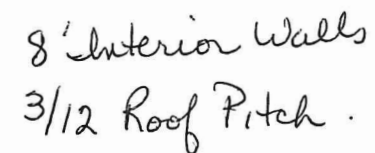 8' Interior Walls
3/12 Roof Pitch.